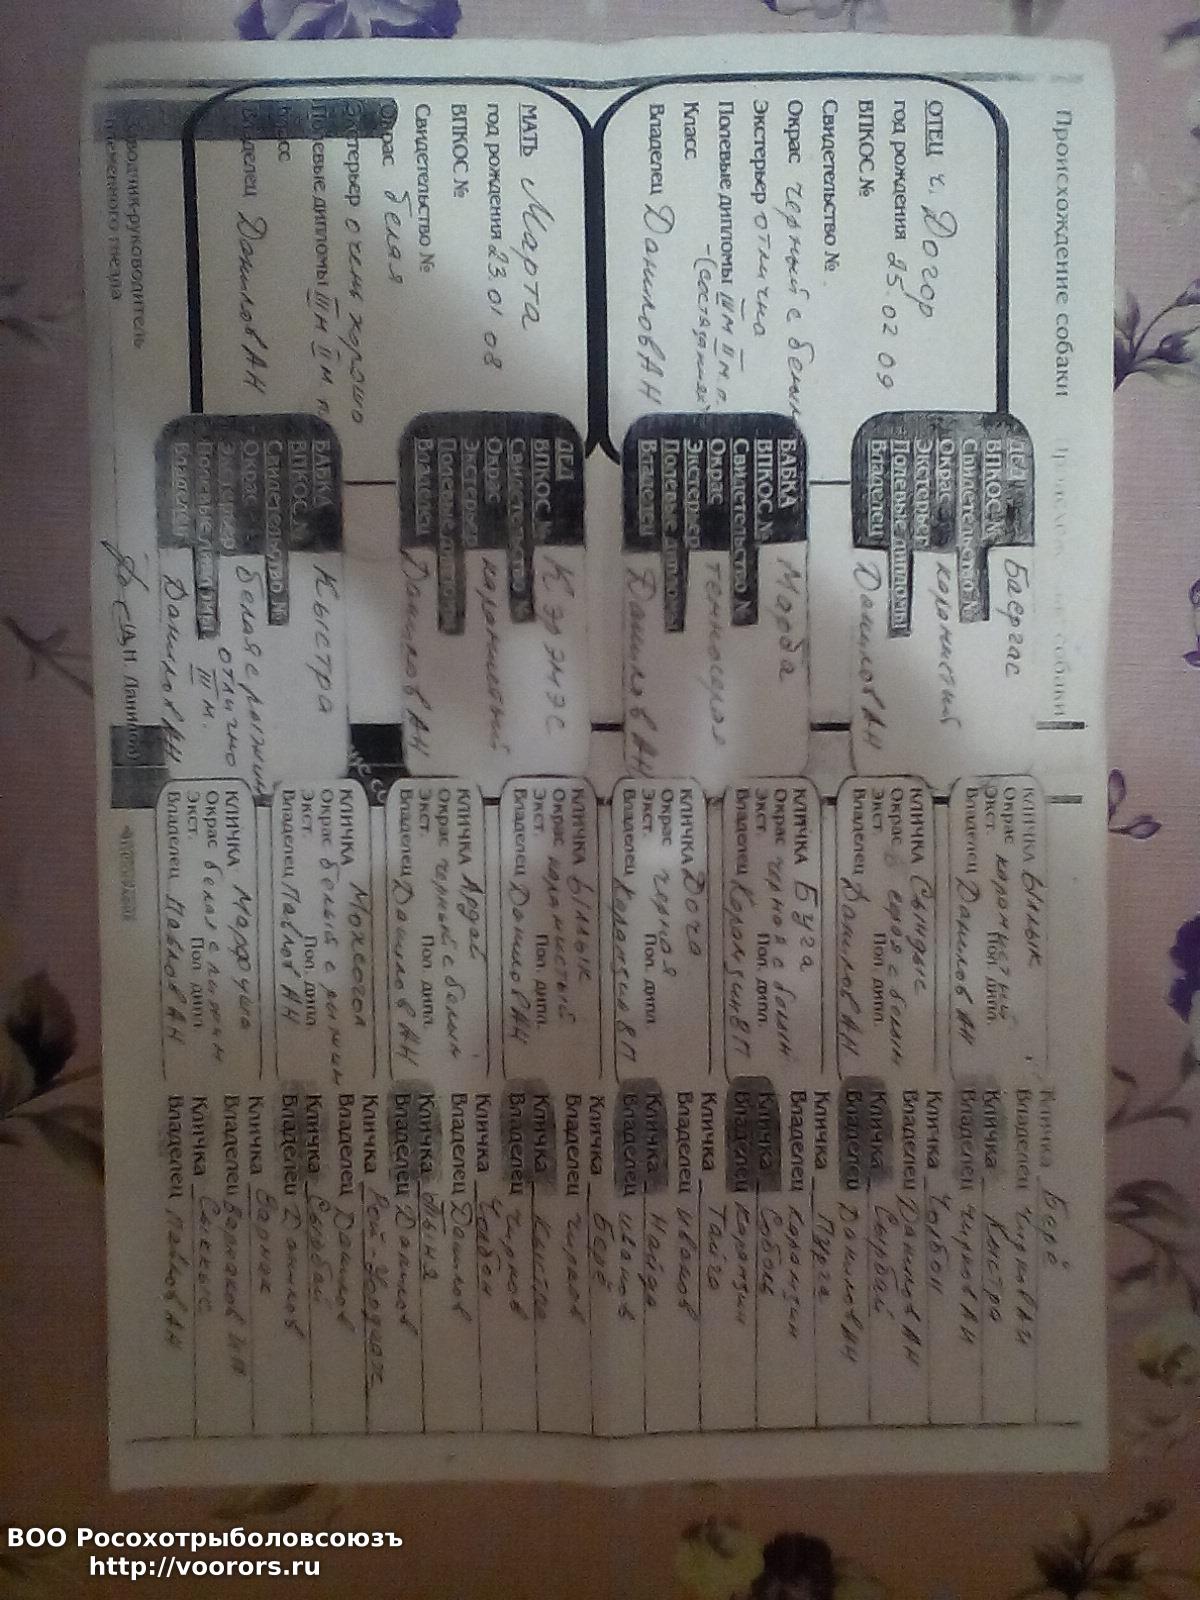 Происхождение собаки
ОТЕЦ ч. Догор
год рождения 25 02 09
ВПКОС №
Свидетельство №
Окрас черный с белым
Экстерьер отлично
Полевые дипломы III м II м. п.
-(состязания)
Класс
Владелец Данилов АН
МАТЬ Марта
год рождения 23.01 08
ВПКОС №
Свидетельство №
Окрас белая
Экстерьер очень хорошо
Полевые дипломы III м II м. п.
Класс
Владелец Данилов АН
Заводчик-руководитель
племенного гнезда
А.Н. Данилов
ДЕД Баергас
ВПКОС №
Свидетельство №
Окрас карамистый
Экстерьер
Полевые дипломы
Владелец Данилов АН
БАБКА Марба
ВПКОС №
Свидетельство №
Окрас темносерая
Экстерьер
Полевые дипломы
Владелец Данилов АН
ДЕД Кэрэмэс
ВПКОС №
Свидетельство №
Окрас карамистый
Экстерьер
Полевые дипломы
Владелец Данилов АН
БАБКА Кыстра
ВПКОС №
Свидетельство №
Окрас белая с рыжим
Экстерьер отлично
Полевые дипломы III м.
Владелец Данилов АН
КЛИЧКА Ылык
Окрас карамистый
Экст. Пол. дипл.
Владелец Данилов АН
КЛИЧКА Сындыс
Окрас серая с белым
Экст. Пол. дипл.
Владелец Данилов АН
КЛИЧКА Буга
Окрас черная с белым
Экст. Пол. дипл.
Владелец Карамзин ВП
КЛИЧКА Доча
Окрас черная
Экст. Пол. дипл
Владелец Карамзин ВП
КЛИЧКА Ылык
Окрас карамистый
Экст. Пол. дипл.
Владелец Данилов АН
КЛИЧКА Ардай
Окрас черный с белым
Экст. Пол. дипл.
Владелец Данилов АН
КЛИЧКА Мохсогол
Окрас белый с рыжим
Экст. Пол. дипл
Владелец Павлов АН
КЛИЧКА Марфуша
Окрас белая с рыжим
Экст. Пол. дипл
Владелец Павлов АН
Кличка Берё
Владелец Чирков АИ
Кличка Кыстра
Владелец Чирков АИ
Кличка Чолбон
Владелец Данилов АН
Кличка Сырбай
Владелец Данилов АН
Кличка Пурга
Владелец Карамзин
Кличка Соболь
Владелец Карамзин
Кличка Тайга
Владелец Иванов
Кличка Найда
Владелец Иванов
Кличка Берё
Владелец Чирков
Кличка Кыстра
Владелец Чирков
Кличка
Владелец Данилов
Кличка
Владелец Данилов
Кличка
Владелец Данилов
Кличка Сырбай
Владелец Данилов
Кличка Варнак
Владелец
Кличка
Владелец Павлов АН
ВОО Росохотрыболовсоюзъ
http://voorors.ru